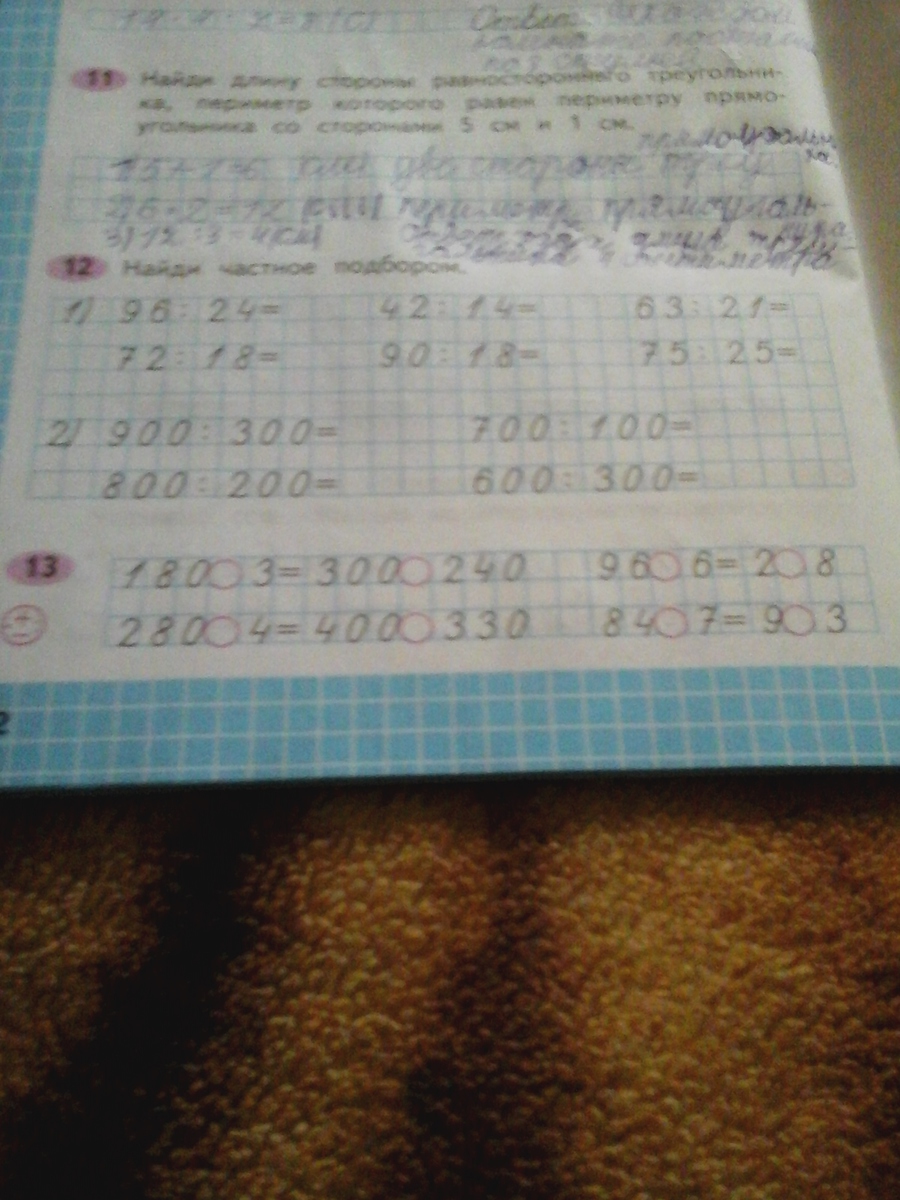 11 Найди длину стороны равностороннего треугольни-
ка, периметр которого равен периметру прямо-
угольника со сторонами 5 см и 1 см.
прямоугольни
ка
1) 5+1=6 две стороны
2) 6·2=12 (см) периметр прямоуголь-
3) 12:3=4(см) длина
12 Найди частное подбором.
1) 96: 24= 42: 14= 63: 21=
72: 18= 90: 18= 75: 25=
2) 900: 300= 700: 100=
800: 200= 600: 300=
13 180○3=300○240 96○6=2○8
280○4=400○330 84○7=9○3
2